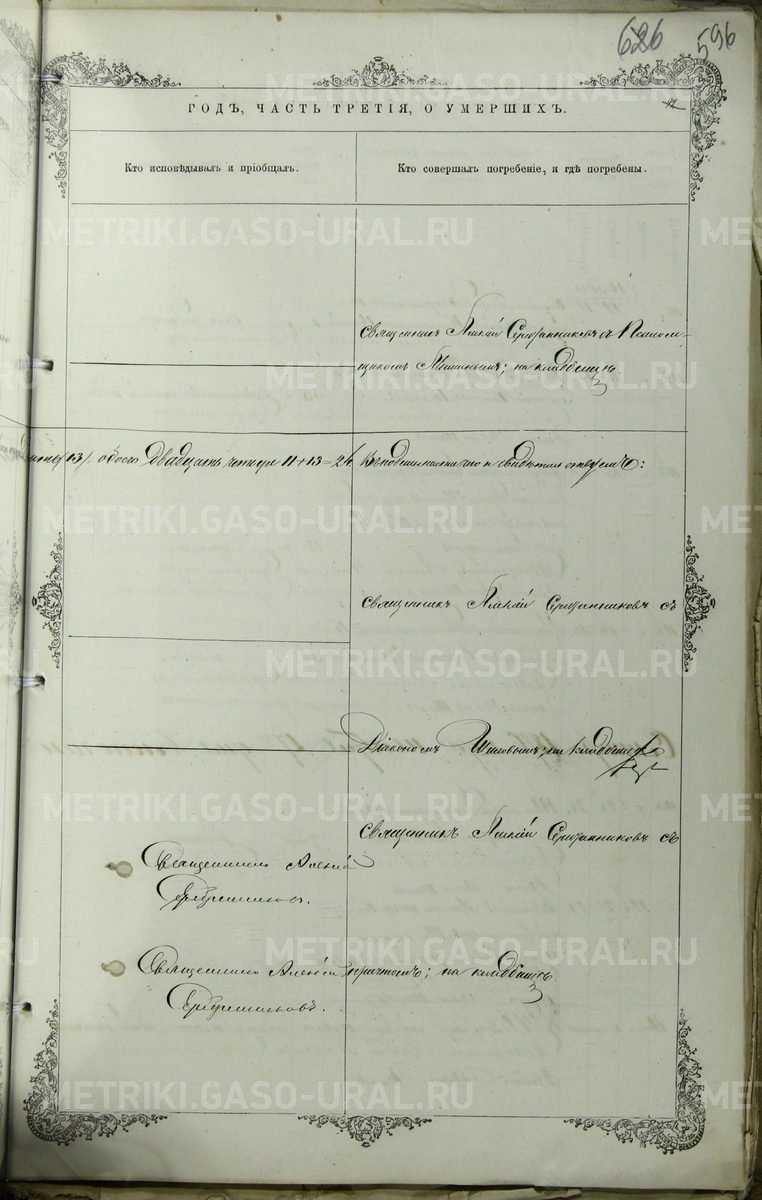 626 596
ГОДЪ, ЧАСТЬ ТРЕТІЯ, О УМЕРШИХЪ.
Кто исповѣдывалъ и пріобщалъ.
Кто совершалъ погребеніе, и гдѣ погребены.
Священникъ Алексѣй Серебренниковъ съ Псаломщикомъ
на кладбищѣ.
(13) обоего двадцать четыре 11+13=24
Священникъ Алексѣй Серебренниковъ съ
Діакономъ на кладбищѣ
Священникъ Алексѣй Серебренниковъ съ
Священникъ Алексѣй
Серебренниковъ.
Священникъ Алексѣй
Серебренниковъ.
причтомъ; на кладбищѣ
METRIKI.GASO-URAL.RU